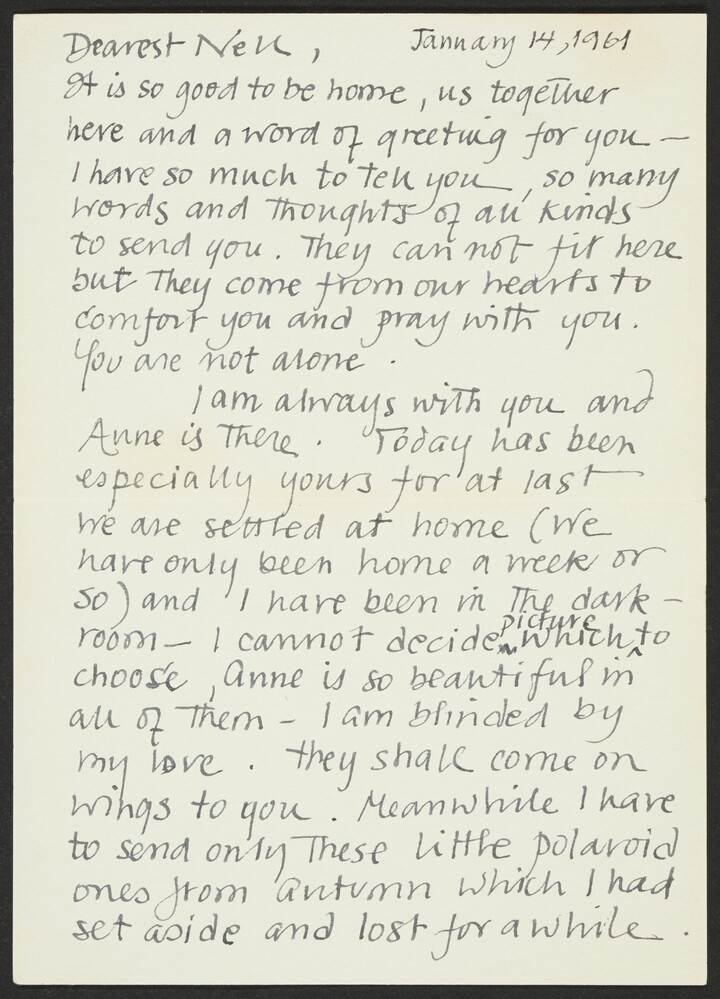 Dearest Nell,   January 14, 1961
It is so good to be home, us together
here and a word of greeting for you —
I have so much to tell you, so many
words and thoughts of all kinds
to send you. They can not fit here
but they come from our hearts to
comfort you and pray with you.
You are not alone.
I am always with you and
Anne is there. Today has been
especially yours for at last
we are settled at home (We
have only been home a week or
so) and I have been in the dark-
picture
room — I cannot decide which to
choose, Anne is so beautiful in
all of them — I am blinded by
my love. They shall come on
wings to you. Meanwhile I have
to send only these little polaroid
ones from autumn which I had
set aside and lost for a while.